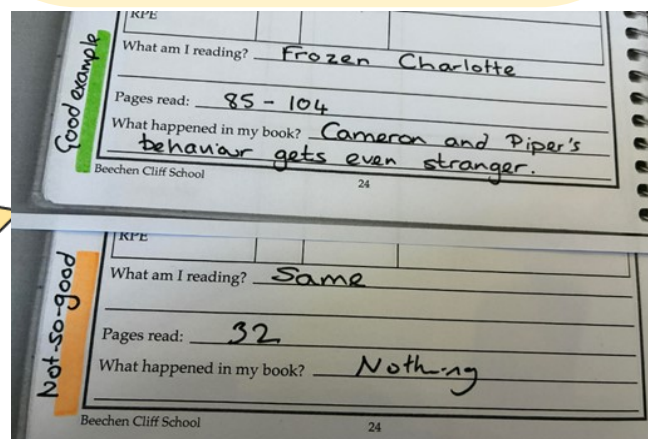 RPE
Good example
What am I reading? Frozen Charlotte
Pages read: 85 - 104
What happened in my book? Cameron and Piper's
behaviour gets even stranger.
Beechen Cliff School
24
RPE
Not-so-good
What am I reading? Same
Pages read: 32
What happened in my book? Nothing
Beechen Cliff School
24